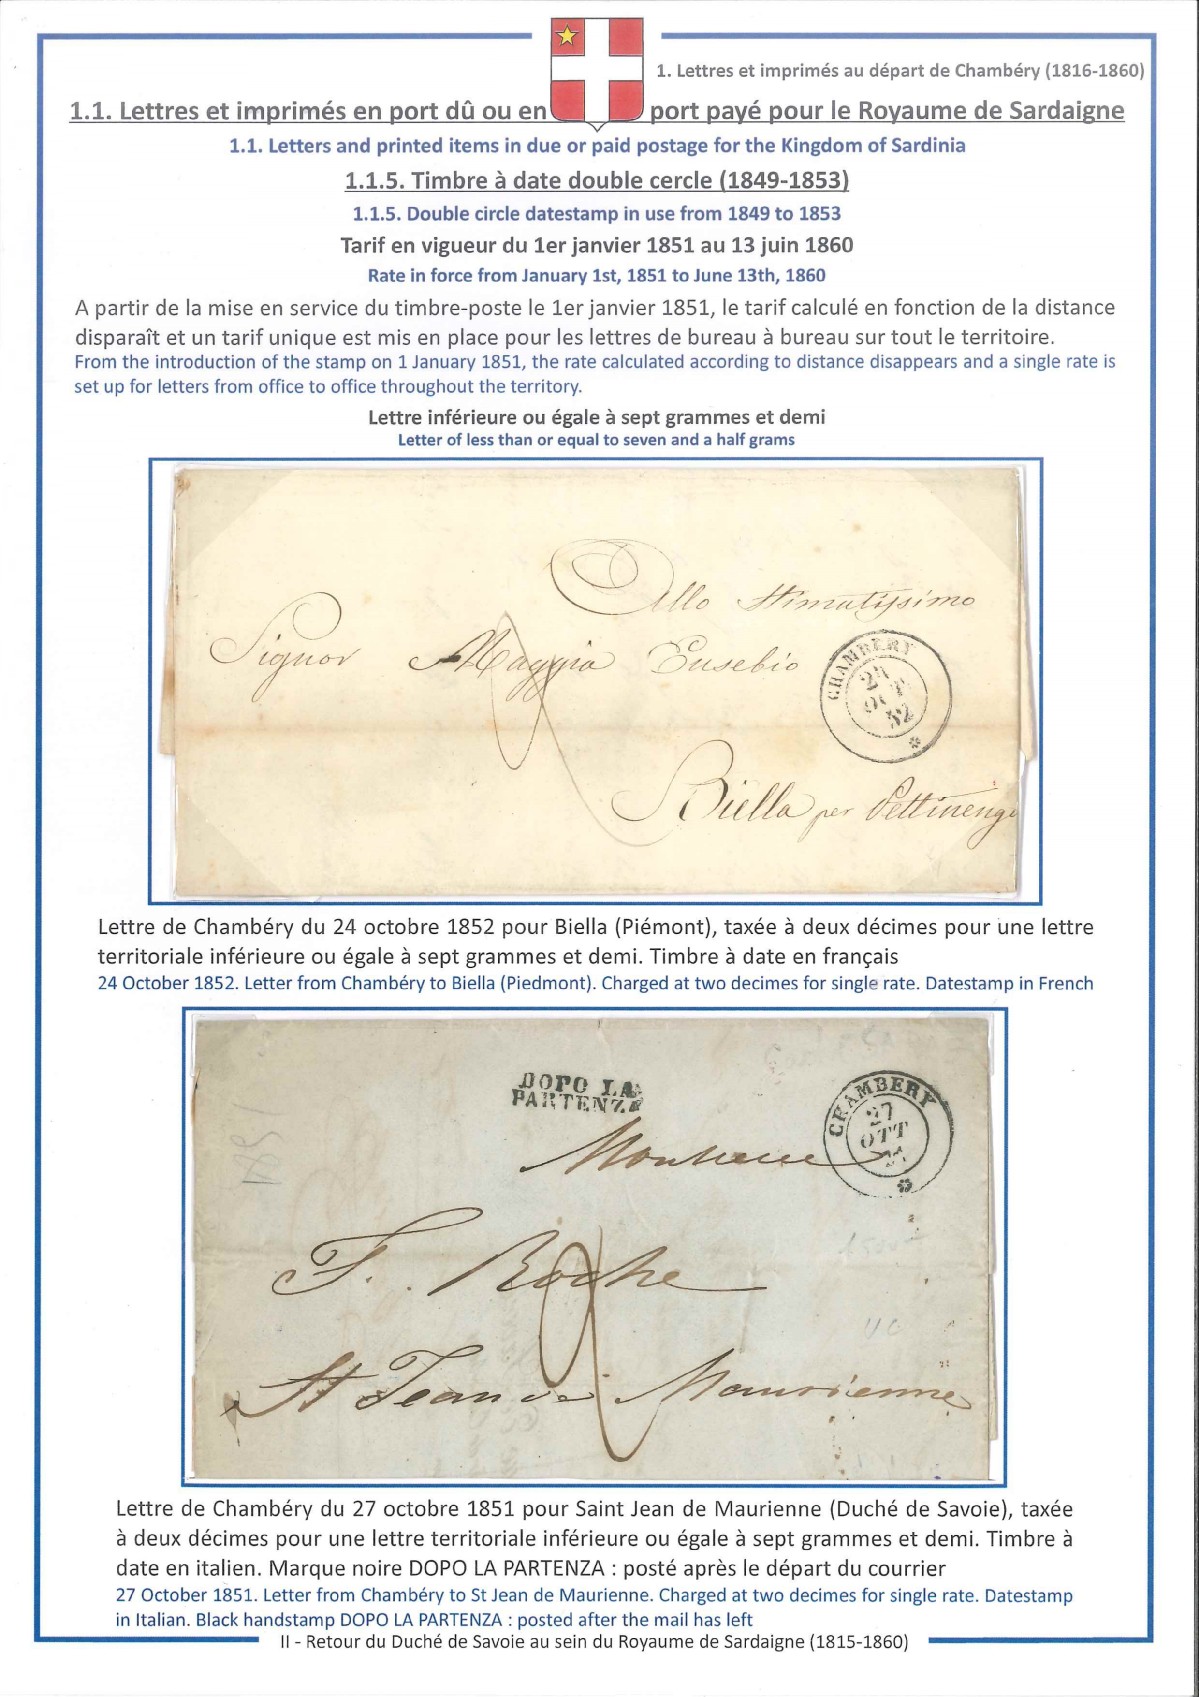 1. Lettres et imprimés au départ de Chambéry (1816-1860)
1.1. Lettres et imprimés en port dû ou en port payé pour le Royaume de Sardaigne
1.1. Letters and printed items in due or paid postage for the Kingdom of Sardinia
1.1.5. Timbre à date double cercle (1849-1853)
1.1.5. Double circle datestamp in use from 1849 to 1853
Tarif en vigueur du 1er janvier 1851 au 13 juin 1860
Rate in force from January 1st, 1851 to June 13th, 1860
A partir de la mise en service du timbre-poste le 1er janvier 1851, le tarif calculé en fonction de la distance
disparaît et un tarif unique est mis en place pour les lettres de bureau à bureau sur tout le territoire.
From the introduction of the stamp on 1 January 1851, the rate calculated according to distance disappears and a single rate is
set up for letters from office to office throughout the territory.
Lettre inférieure ou égale à sept grammes et demi
Letter of less than or equal to seven and a half grams
Allo Stimatissimo
Signor Maggia Eusebio
CHAMBERY
24
OCT
52
Biella per Pettineng
2
Lettre de Chambéry du 24 octobre 1852 pour Biella (Piémont), taxée à deux décimes pour une lettre
territoriale inférieure ou égale à sept grammes et demi. Timbre à date en français
24 October 1852. Letter from Chambéry to Biella (Piedmont). Charged at two decimes for single rate. Datestamp in French
DOPO LA
PARTENZA
CHAMBERY
27
OTT
Monsieur
F. Roche
2
St Jean de Maurienne
Lettre de Chambéry du 27 octobre 1851 pour Saint Jean de Maurienne (Duché de Savoie), taxée
à deux décimes pour une lettre territoriale inférieure ou égale à sept grammes et demi. Timbre à
date en italien. Marque noire DOPO LA PARTENZA : posté après le départ du courrier
27 October 1851. Letter from Chambéry to St Jean de Maurienne. Charged at two decimes for single rate. Datestamp
in Italian. Black handstamp DOPO LA PARTENZA : posted after the mail has left
II - Retour du Duché de Savoie au sein du Royaume de Sardaigne (1815-1860)